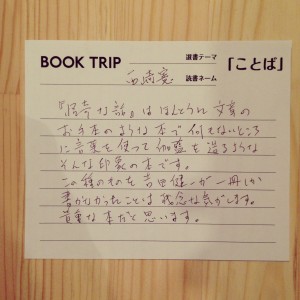 BOOK TRIP 選書テーマ 「ことば」
西崎憲 読書ネーム
『怪奇な話』はほんとうに文章の
お手本のような本で何もないところ
に言葉を使って伽藍を造るような
そんな印象の本です。
この種のものを吉田健一が一冊しか
書かなかったことは残念な気がします。
貴重な本だと思います。